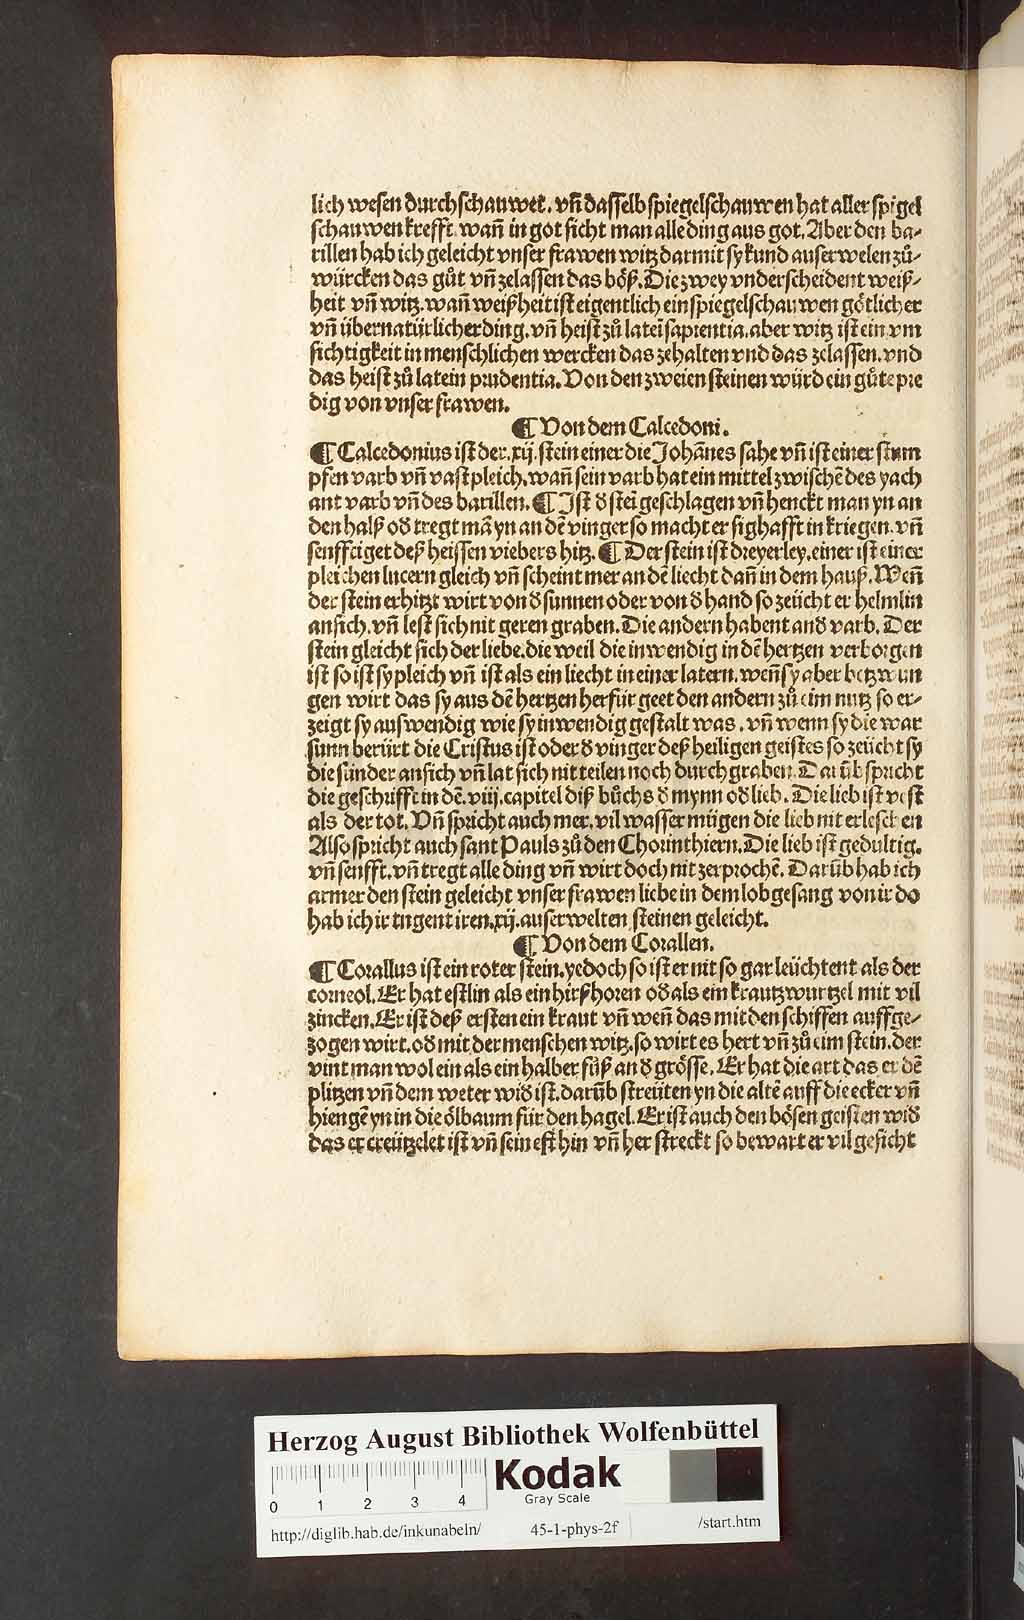 lich wesen durchschauwet. vñ dasselb spiegelschauwen hat aller spigel
schauwen krefft. wañ in got sicht man alle ding aus got. Aber den ba⸗
rillen hab ich geleicht vnser frawen witz darmit sy kund auserwelen zů⸗
würcken das gůt vñ zelassen das böß. Die zwey vnderscheident weiß⸗
heit vñ witz. wañ weißheit ist eigentlich ein spiegelschauwen götlicher
vñ übernatürlicher ding. vñ heist zů lateī sapientia. aber witz ist ein vm
sichtigkeit in menschlichen wercken das zehalten vnd das zelassen. vnd
das heist zů latein prudentia. Von den zweien steinen würd ein gůte pre
dig von vnser frawen.
¶ Von dem Calcedoni.
¶ Calcedonius ist der .xij. stein einer die Johānes sahe vñ ist einer stum
pfen varb vñ vast pleich. wañ sein varb hat ein mittel zwischē des yach
ant varb vñ des barillen. ¶ Jst d̕ steī geschlagen vñ henckt man yn an
den halß od̕ tregt mā yn an dē vinger so macht er sighafft in kriegen. vñ
senfftiget deß heissen viebers hitz. ¶ Der stein ist dreyerley. einer ist einer
pleichen lucern gleich vñ scheint mer an dē liecht dañ in dem hauß. Weñ
der stein erhitzt wirt von d̕ sunnen oder von d̕ hand so zeücht er helmlin
an sich. vñ lest sich nit geren graben. Die andern habent and̕ varb. Der
stein gleicht sich der liebe. die weil die inwendig in dē hertzen verborgen
ist so ist sy pleich vñ ist als ein liecht in einer latern. weñ sy aber betzwun
gen wirt das sy aus dē hertzen herfür geet den andern zů eim nutz so er⸗
zeigt sy auswendig wie sy inwendig gestalt was. vñ wenn sy die war
sunn berürt die Cristus ist oder d̕ vinger deß heiligen geistes so zeücht sy
die sünder an sich vñ lat sich nit teilen noch durch graben. Darüb spricht
die geschrifft in dē .viij. capitel diß bůchs d̕ mynn od̕ lieb. Die lieb ist vest
als der tot. Vñ spricht auch mer. vil wasser mügen die lieb nit erleschen
Also spricht auch sant Pauls zů den Chorinthiern. Die lieb ist gedultig.
vñ senfft. vñ tregt alle ding vñ wirt doch nit zerprochē. Darüb hab ich
armer den stein geleicht vnser frawen liebe in dem lobgesang von ir do
hab ich ir tugent iren .xij. auserwelten steinen geleicht.
¶ Von dem Corallen.
¶ Corallus ist ein roter stein. yedoch so ist er nit so gar leüchtent als der
corneol. Er hat estlin als ein hirßhoren od̕ als ein krautzwurtzel mit vil
zincken. Er ist deß ersten ein kraut vñ weñ das mit den schiffen auffge⸗
zogen wirt. od̕ mit der menschen witz. so wirt es hert vñ zů eim stein. der
vint man wol ein als ein halber fůß an d̕ grösse. Er hat die art das er dē
plitzen vñ dem weter wid̕ ist. darüb streüten yn die altē auff die ecker vñ
hiengē yn in die ölbaum für den hagel. Er ist auch den bösen geisten wid̕
das er creützelet ist vñ sein est hin vñ her streckt so bewart er vil gesicht
Herzog August Bibliothek Wolfenbüttel
0 1 2 3 4
Kodak
Gray Scale
http://diglib.hab.de/inkunabeln/ 45-1-phys-2f /start.htm